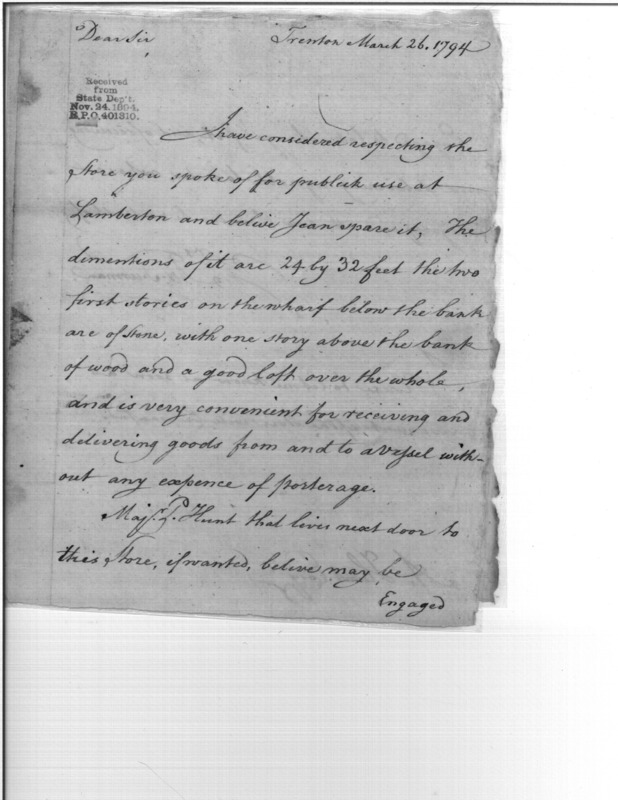 Dear Sir Trenton March 26. 1794
Received
from
State Dep't.
Nov. 24. 1894.
R.P.O, 401310.
I have considered respecting the
Store you spoke of for publick use at
Lamberton and belive I can spare it, The
dimentions of it are 24 by 32 feet the two
first stories on the wharf below the bank
are of stone, with one story above the bank
of wood and a good loft over the whole,
and is very convenient for receiving and
delivering goods from and to a vessel with-
out any expence of porterage.
Majr. P. Hunt that lives next door to
this Store, if wanted, belive may be
Engaged